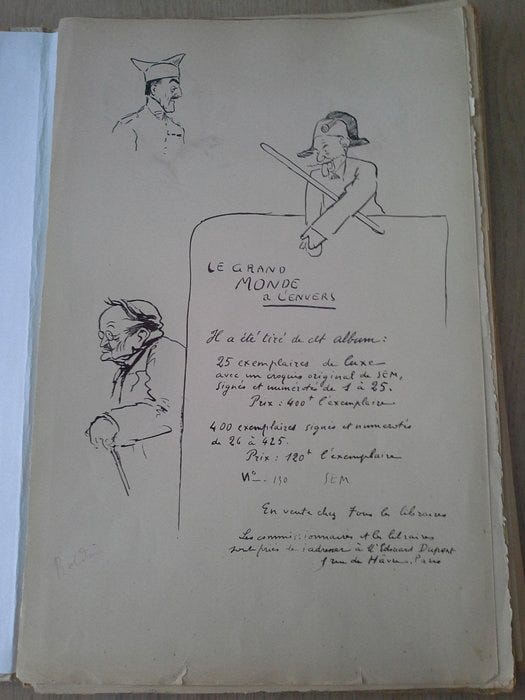 LE GRAND
MONDE
a L'ENVERS
Il a été tiré de cet album:
25 exemplaires de luxe
avec un croquis original de SEM,
signés et numérotés de 1 à 25.
Prix: 400f l'exemplaire
400 exemplaires signés et numerotés
de 26 à 425.
Prix: 120f l'exemplaire
No - 130 SEM
En vente chez Tous les libraires
Les commissionnaires et les libraires
sont priés de s'adresser à M. Edouard Dupont
rue du Hâvre, Paris